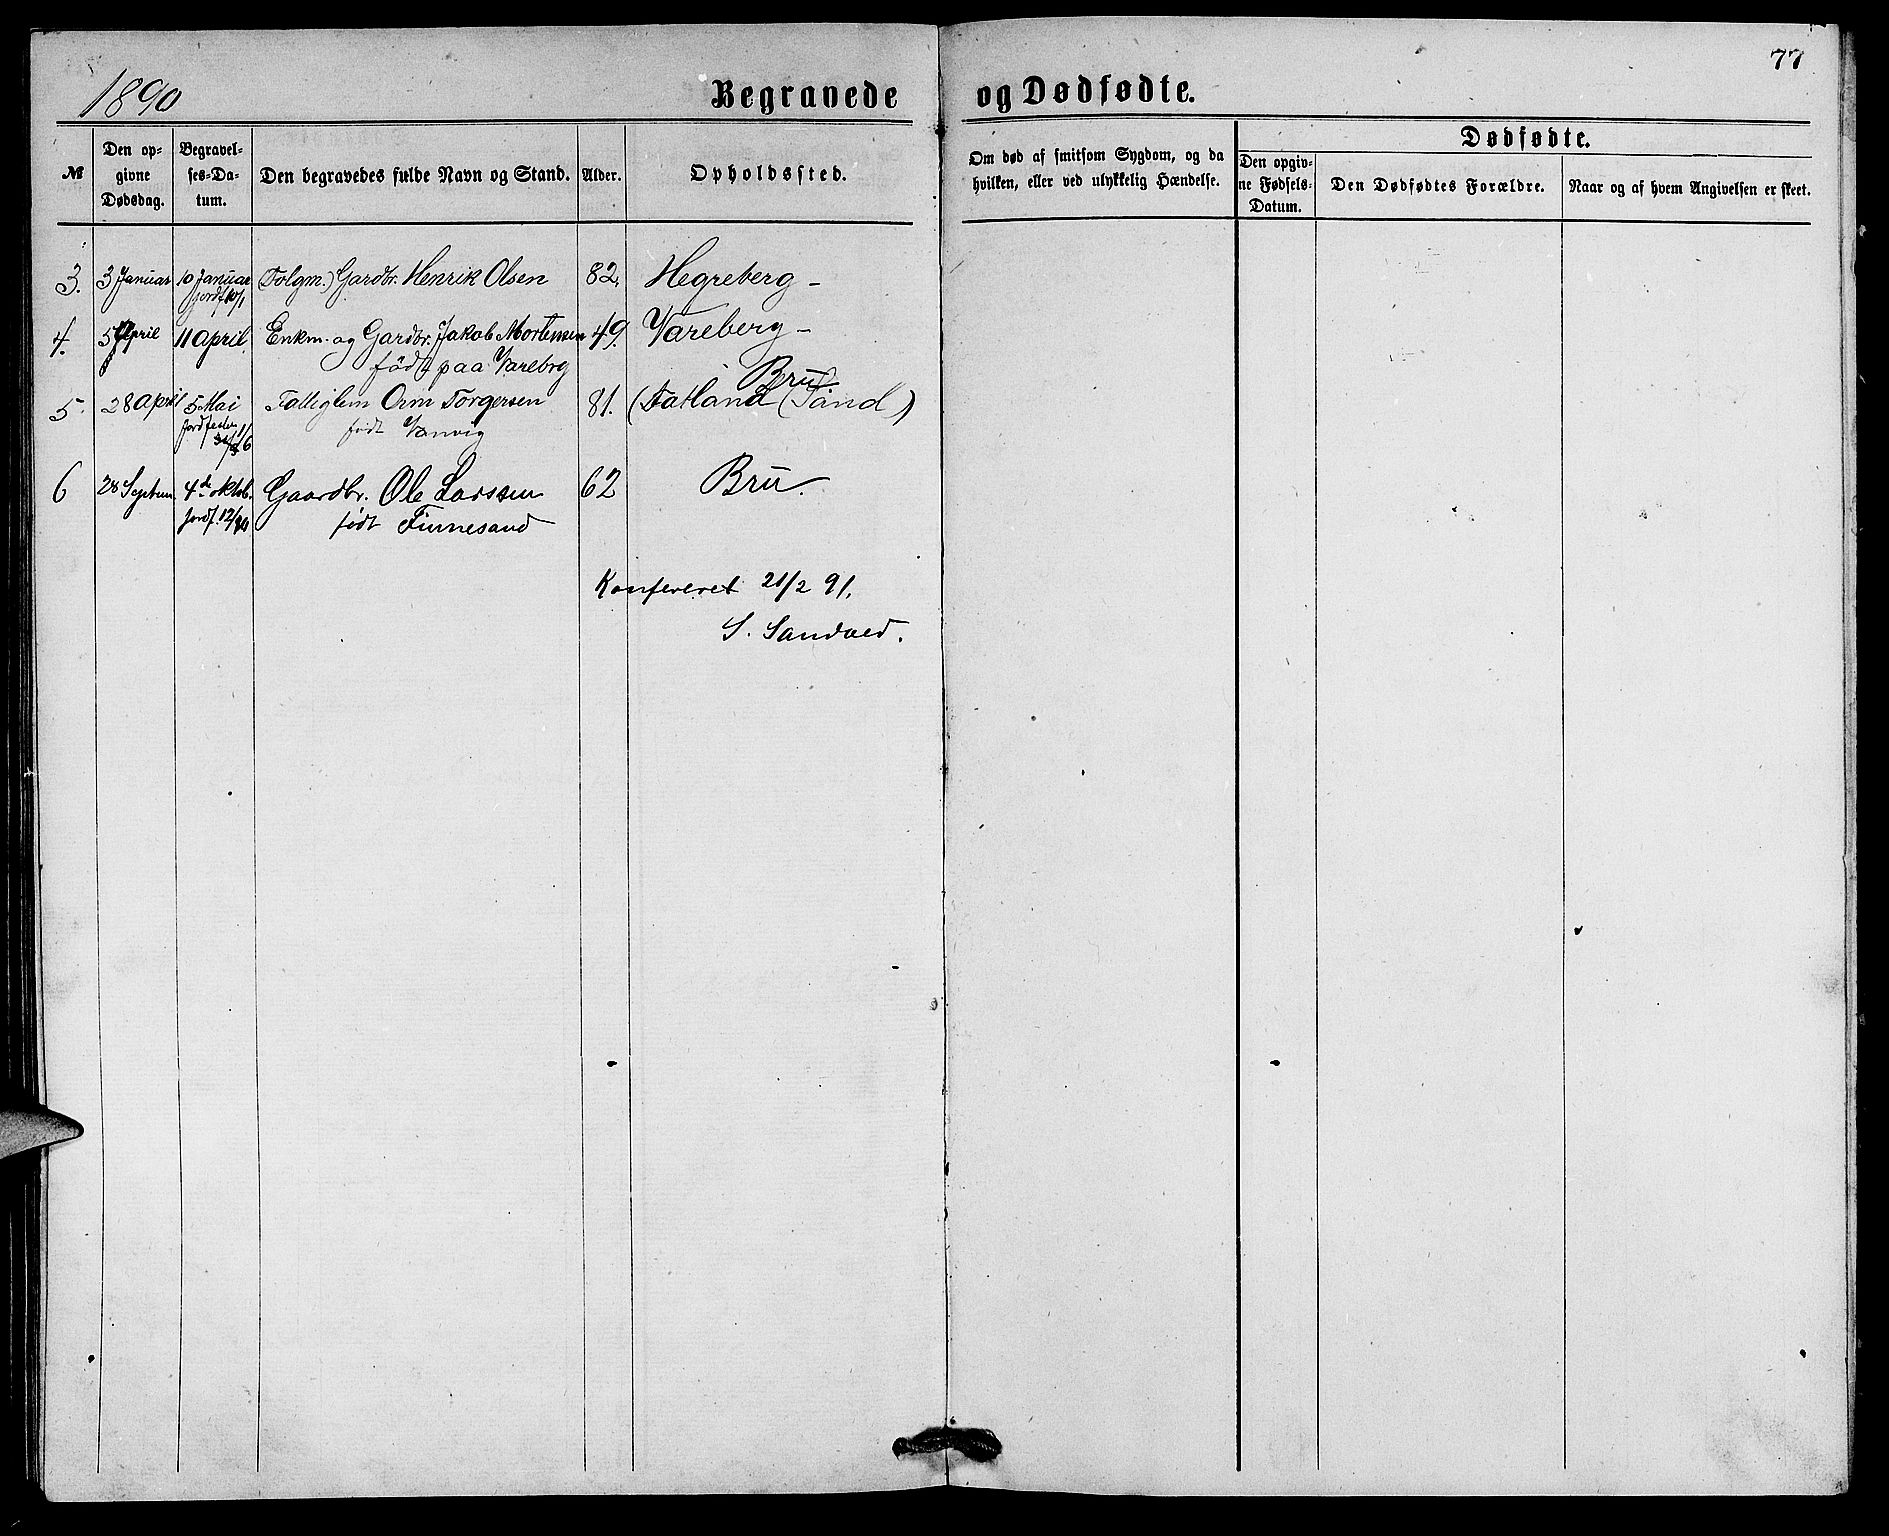 77
1890
Begravede og Dødfødte.
№
Den opgivne Dødsdag.
Begravelses-Datum.
Den begravedes fulde Navn og Stand.
Alder.
Opholdssted.
Om død af smitsom Sygdom, og da hvilken, eller ved ulykkelig Hændelse.
Dødfødte.
Den opgivne Fødsels-Datum.
Den Dødfødtes Forældre.
Naar og af hvem Angivelsen er skeet.
3. 3 Januar 10 Januar Folgm.) Gardbr. Henrik Olsen 82, Hegreberg -
jordf 10/1
4. 5 April 11 April. Enkm. og Gardbr. Jakob Mortensen 49. Vareberg -
født paa Varebrg
Bru
5. 28 April 5 Mai Fattiglem Orm Torgersen 81. (Fatland (Sand)
Jordfestet født Vanvig
1/6
6 28 Septem. 4de oktob. Gaardbr. Ole Larssen 62 Bru.
jordf. 12/10 født Finnesand
Konfereret 21/2 91.
S. Sandved.